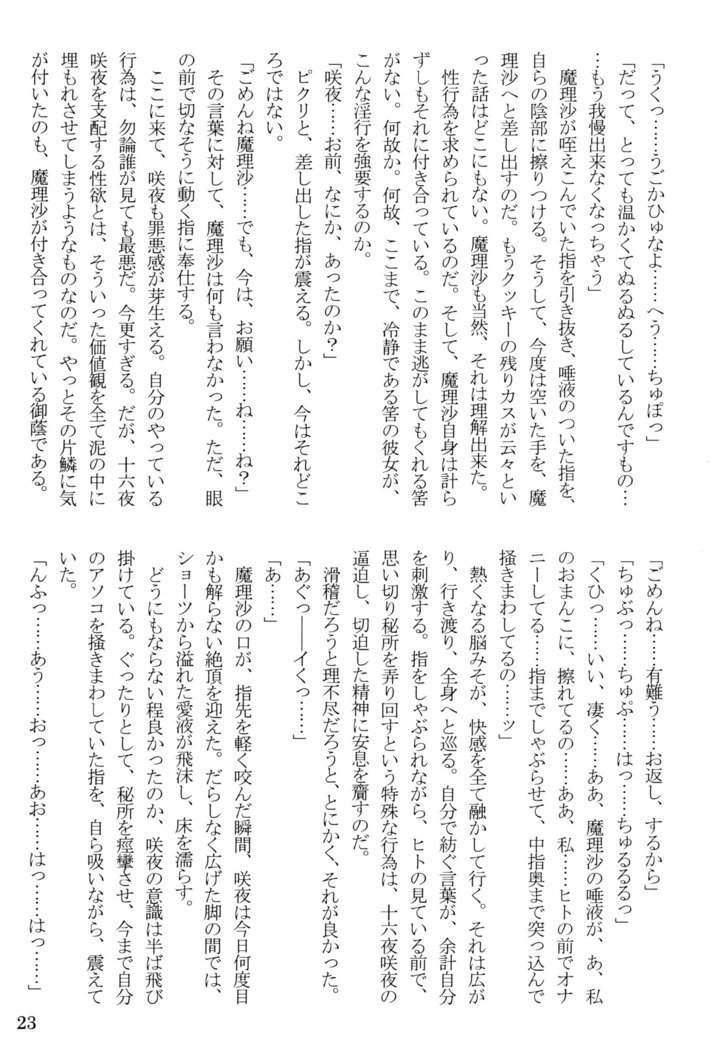 「うくっ……うごかひゅなよ……へう……ちゅぽっ」
「だって、とっても温かくてぬるぬるしているんですもの…
…もう我慢出来なくなっちゃう」
魔理沙が咥えこんでいた指を引き抜き、唾液のついた指を、
自らの陰部に擦りつける。そうして、今度は空いた手を、魔
理沙へと差し出すのだ。もうクッキーの残りカスが云々とい
った話はどこにもない。魔理沙も当然、それは理解出来た。
性行為を求められているのだ。そして、魔理沙自身は計ら
ずしもそれに付き合っている。このまま逃がしてもくれる筈
がない。何故か。何故、ここまで、冷静である筈の彼女が、
こんな淫行を強要するのか。
「咲夜……お前、なにか、あったのか？」
ピクリと、差し出した指が震える。しかし、今はそれどこ
ろではない。
「ごめんね魔理沙……でも、今は、お願い……ね……ね？」
その言葉に対して、魔理沙は何も言わなかった。ただ、眼
の前で切なそうに動く指に奉仕する。
ここに来て、咲夜も罪悪感が芽生える。自分のやっている
行為は、勿論誰が見ても最悪だ。今更すぎる。だが、十六夜
咲夜を支配する性欲とは、そういった価値観を全て泥の中に
埋もれさせてしまうようなものなのだ。やっとその片鱗に気
が付いたのも、魔理沙が付き合ってくれている御蔭である。
「ごめんね……有難う……お返し、するから」
「ちゅぶっ……ちゅぷ……はっ……ちゅるるるっ」
「くひっ……いい、凄く……ああ、魔理沙の唾液が、あ、私
のおまんこに、擦れてるの……ああ、私……ヒトの前でオナ
ニーしてる……指までしゃぶらせて、中指奥まで突っ込んで
掻きまわしてるの……ッ」
熱くなる脳みそが、快感を全て融かして行く。それは広が
り、行き渡り、全身へと巡る。自分で紡ぐ言葉が、余計自分
を刺激する。指をしゃぶられながら、ヒトの見ている前で、
思い切り秘所を弄り回すという特殊な行為は、十六夜咲夜の
逼迫し、切迫した精神に安息を齎すのだ。
滑稽だろうと理不尽だろうと、とにかく、それが良かった。
「あぐっ──イくっ……」
「あ……」
魔理沙の口が、指先を軽く咬んだ瞬間、咲夜は今日何度目
かも解らない絶頂を迎えた。だらしなく広げた脚の間では、
ショーツから溢れた愛液が飛沫し、床を濡らす。
どうにもならない程良かったのか、咲夜の意識は半ば飛び
掛けている。ぐったりとして、秘所を痙攣させ、今まで自分
のアソコを掻きまわしていた指を、自ら吸いながら、震えて
いた。
「んふっ……あう……おっ……あお……はっ……はっ……」
23